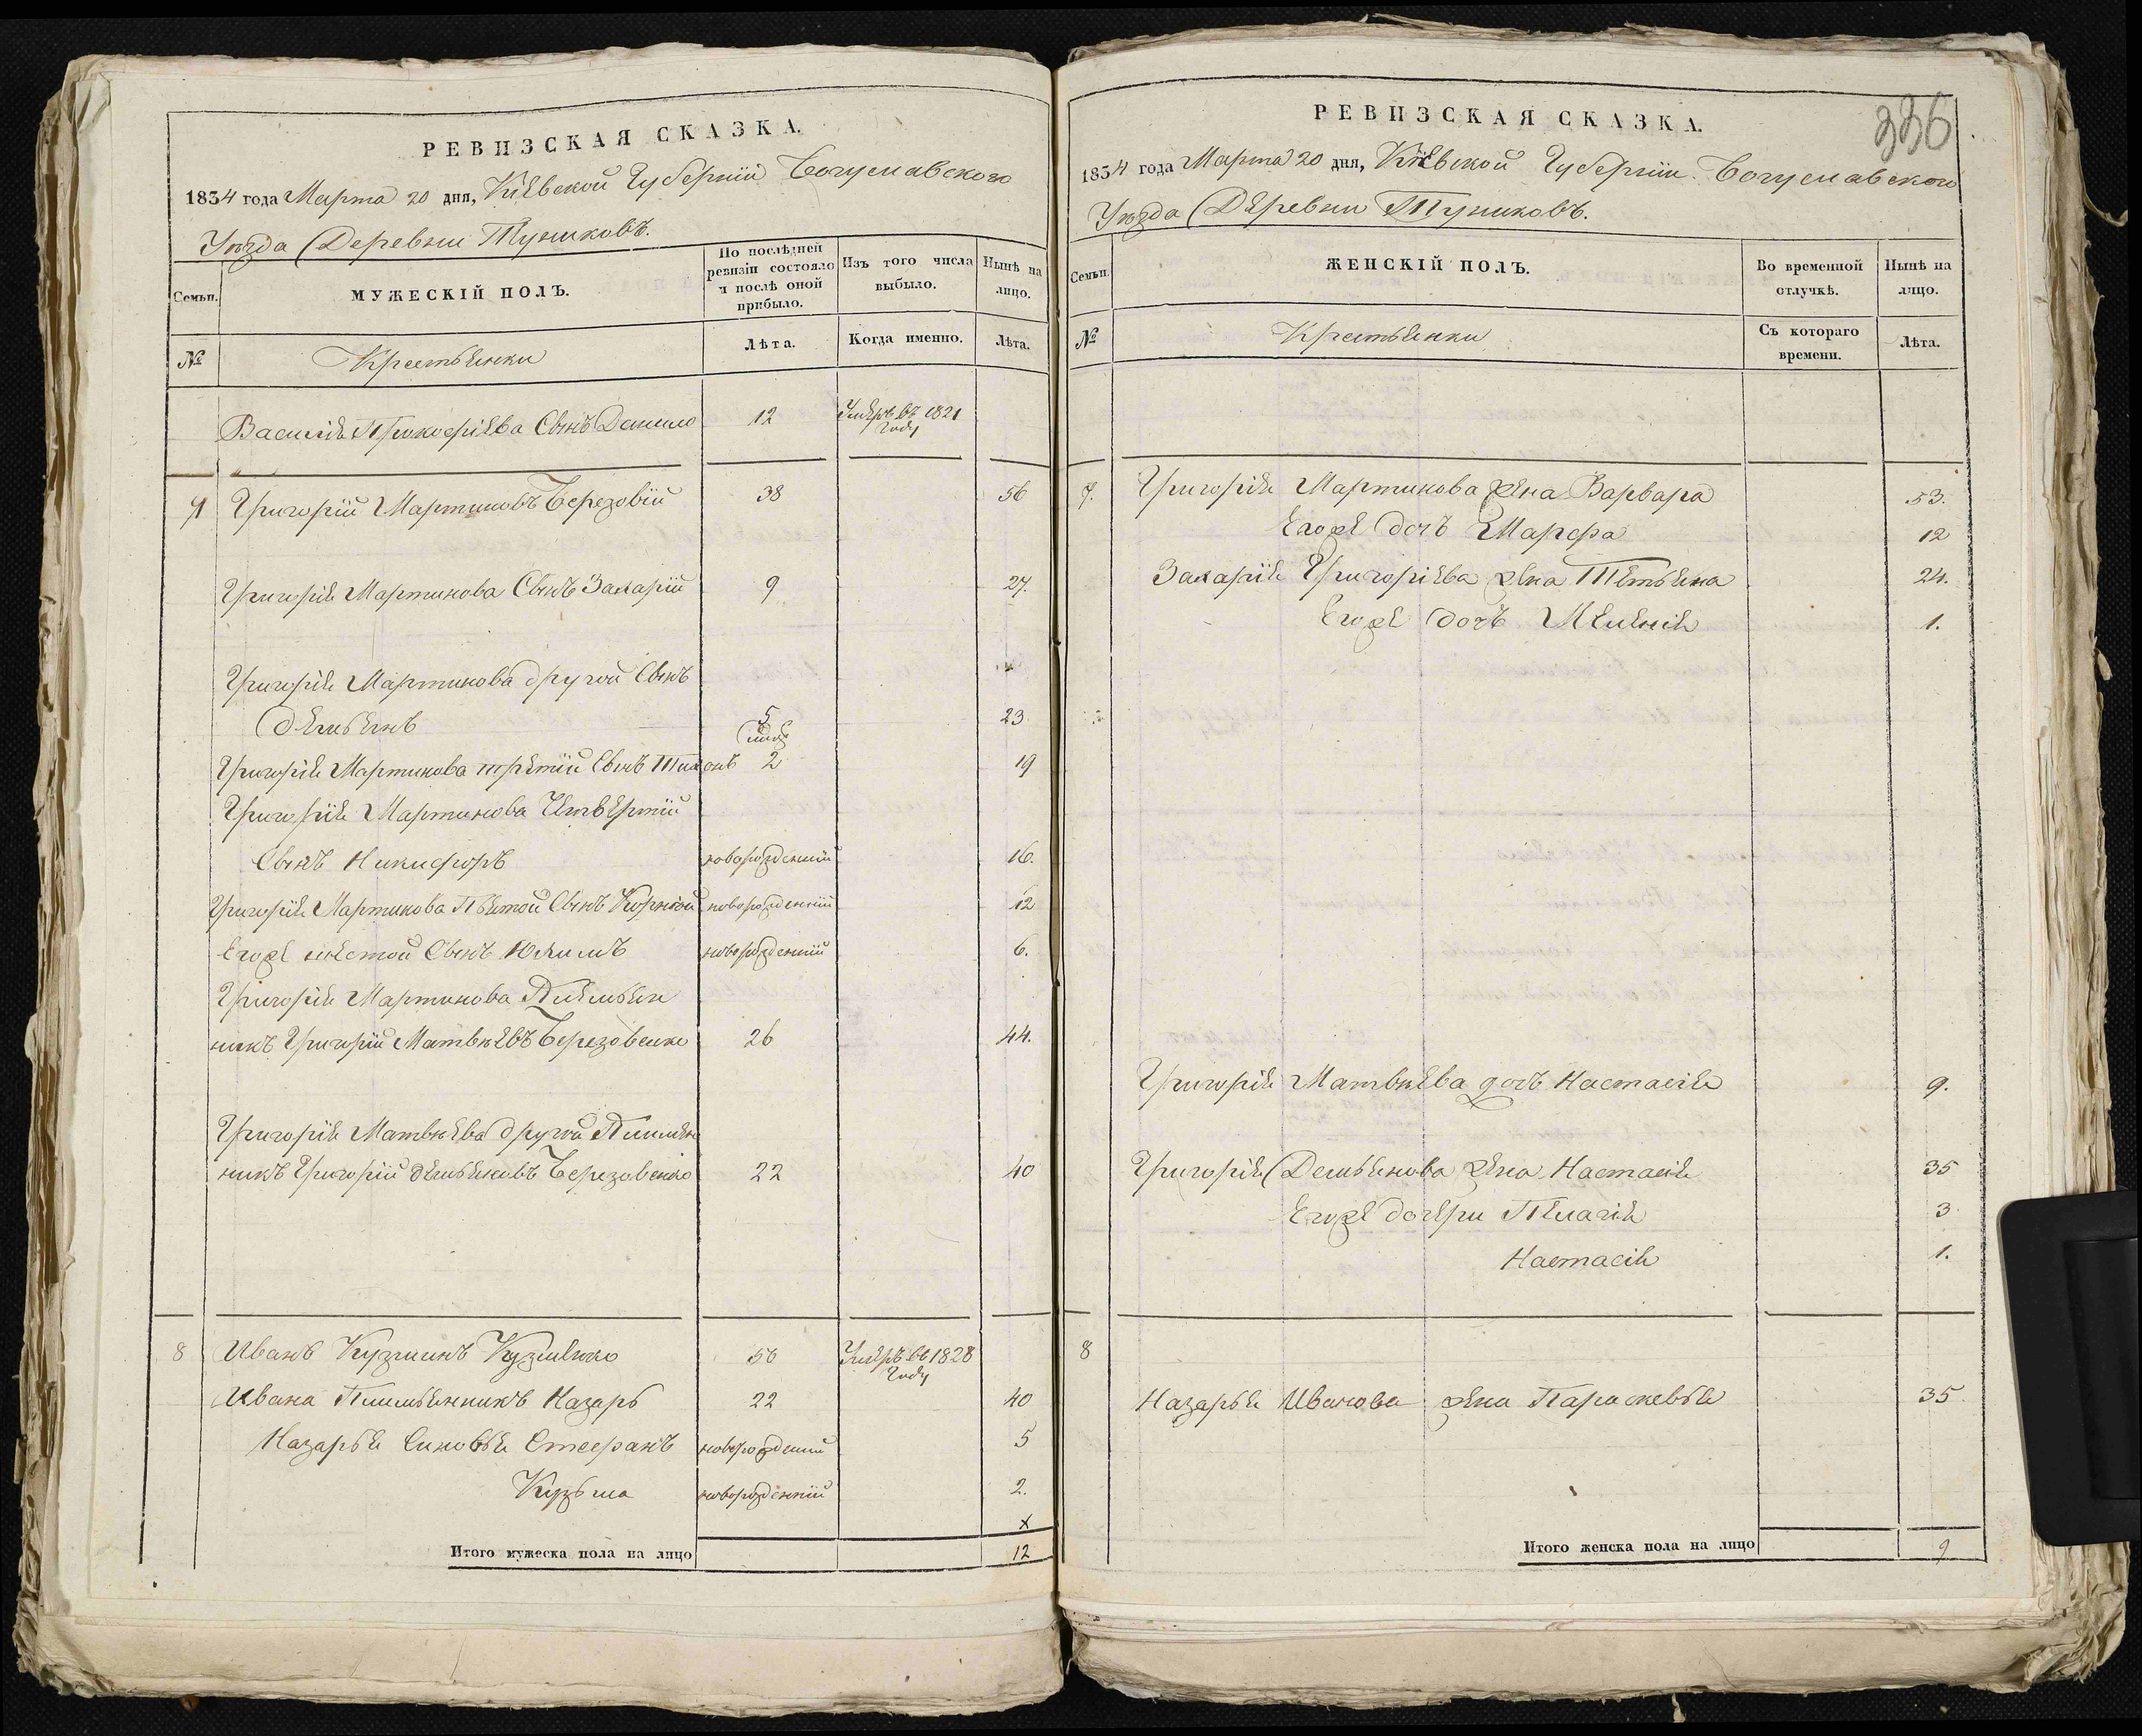 РЕВИЗСКАЯ СКАЗКА.
1834 года Марта 20 дня, Кіевской Губерніи Богуславского
Уѣзда Деревни Туниковъ.
Семьи.
МУЖЕСКІЙ ПОЛЪ.
По послѣдней
ревизіи состояло
и послѣ оной
прибыло.
Изъ того числа
выбыло.
Нынѣ на
лицо.
№
Крестьянки
Лѣта.
Когда именно.
Лѣта.
Василія Прокофіева Сынъ Данило 12 Умеръ въ 1821
Году
7 Григорій Мартиновъ Березовій 38 56
Григорія Мартинова Сынъ Захарій 9 27.
Григорія Мартинова другой Сынъ
Демьянъ 5 23
Григорія Мартинова третій Сынъ Тихонъ 2 19
Григорія Мартинова Четвертій
Сынъ Никифоръ новорожденній 16.
Григорія Мартинова Пятой Сынъ Корній новорожденній 12
Егоже шестой Сынъ Юхимъ новорожденній 6.
Григорія Мартинова Племьян
никъ Григорій Матвѣевъ Березовенко 26 44.
Григорія Матвѣева другой Племян
никъ Григорій Демьяновъ Березовенко 22 40
8 Иванъ Кузминъ Кузменко 56 Умеръ въ 1828
Году
Ивана Племьянникъ Назарь 22 40
Назарья Синовья Стефанъ новорожденій 5
Кузьма новорожденній 2.
х
Итого мужеска пола на лицо 12
336
РЕВИЗСКАЯ СКАЗКА.
1834 года Марта 20 дня, Кіевской Губерніи Богуславского
Уѣзда Деревни Туниковъ.
Семьи.
ЖЕНСКІЙ ПОЛЪ.
Во временной
отлучкѣ.
Нынѣ на
лицо.
№
Крестьянки
Съ котораго
времени.
Лѣта.
7. Григорія Мартинова жена Варвара 53.
Егоже дочъ Марфа 12
Захарія Григоріева жена Тетьяна 24.
Егоже дочъ Меланія 1.
Григорія Матвѣева дочъ Настасія 9.
Григорія Демьянова жена Настасія 35
Егоже дочери Пелагія 3
Настасія 1.
8
Назарья Иванова жена Параскевья 35
Итого женска пола на лицо 9